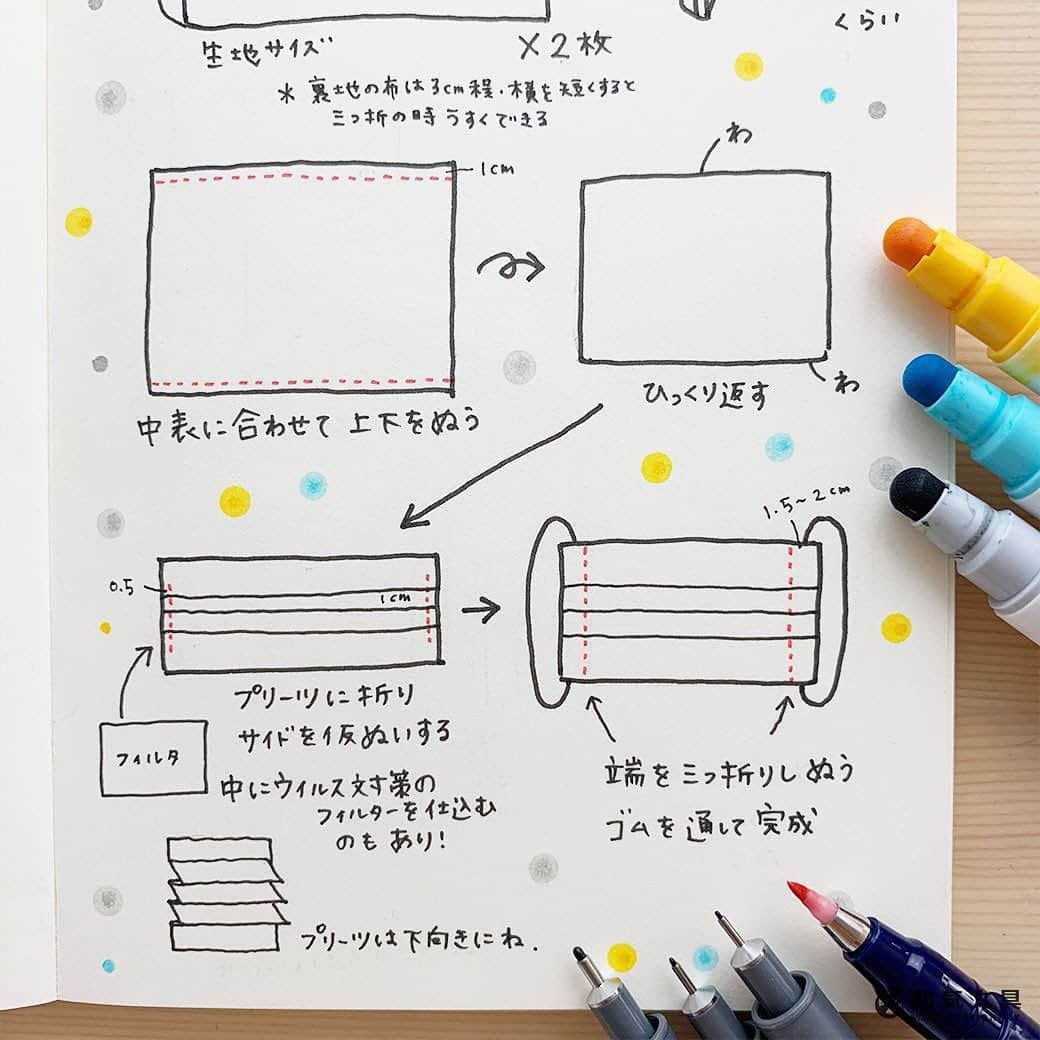 くらい
生地サイズ ×2枚
* 裏地の布は3cm程、横を短くすると
三つ折の時うすくできる
1cm
わ
わ
中表に合わせて上下をぬう
ひっくり返す
0.5
1cm
1.5~2cm
プリーツに折り
サイドを仮ぬいする
フィルタ
中にウイルス対策の
フィルターを仕込む
のもあり!
端を三つ折りしぬう
ゴムを通して完成
プリーツは下向きにね.